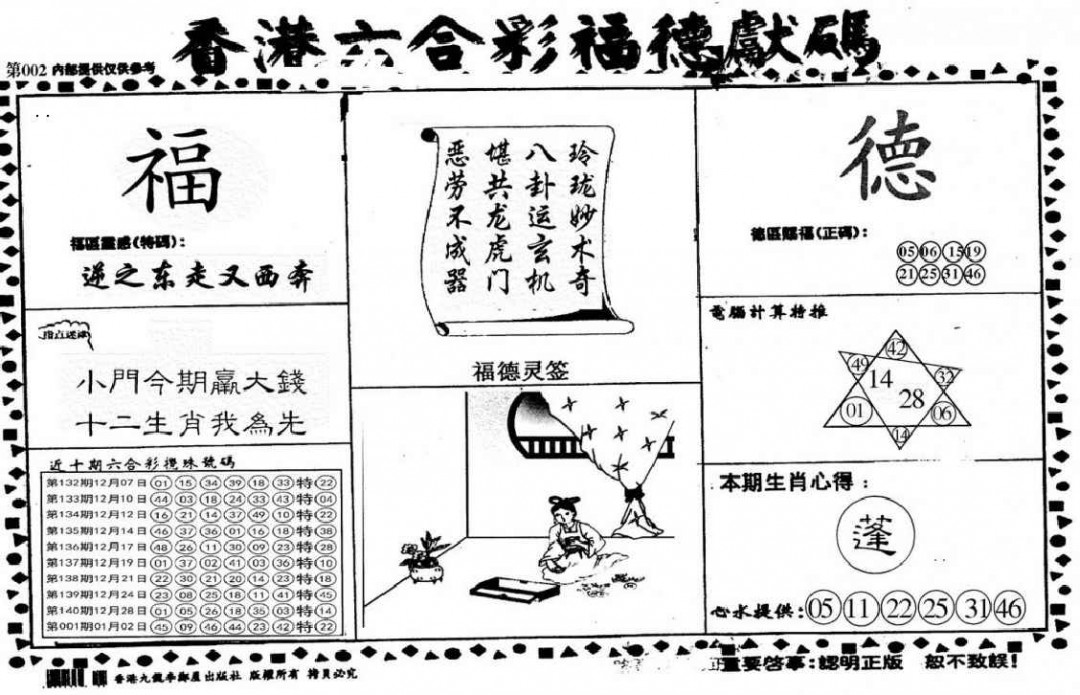 香港六合彩福德獻碼
第002 内部提供仅供参考
福
福區靈感(特碼):
逆之东走又西奔
小門今期贏大錢
十二生肖我為先
近十期六合彩攪珠號碼
第132期12月07日 01 15 34 39 18 33 特 22
第133期12月10日 44 03 18 24 33 43 特 04
第134期12月12日 16 21 14 37 49 10 特 22
第135期12月14日 46 37 36 01 16 18 特 38
第136期12月17日 48 26 11 30 09 23 特 28
第137期12月19日 01 37 02 41 03 36 特 10
第138期12月21日 22 30 21 20 14 23 特 18
第139期12月24日 23 08 25 18 11 41 特 45
第140期12月28日 01 05 26 18 35 03 特 14
第001期01月02日 45 09 46 44 23 42 特 22
玲珑妙术奇
八卦运玄机
堪共龙虎门
恶劳不成器
福德灵签
德
德區賜福(正碼):
05 06 15 19
21 25 31 46
電腦計算特推
42
49 32
14 28
01 06
14
本期生肖心得:
蓬
心水提供: 05 11 22 25 31 46
香港九龍李鄭屋出版社 版權所有 拷貝必究
重要啓事:認明正版 般不致誤!